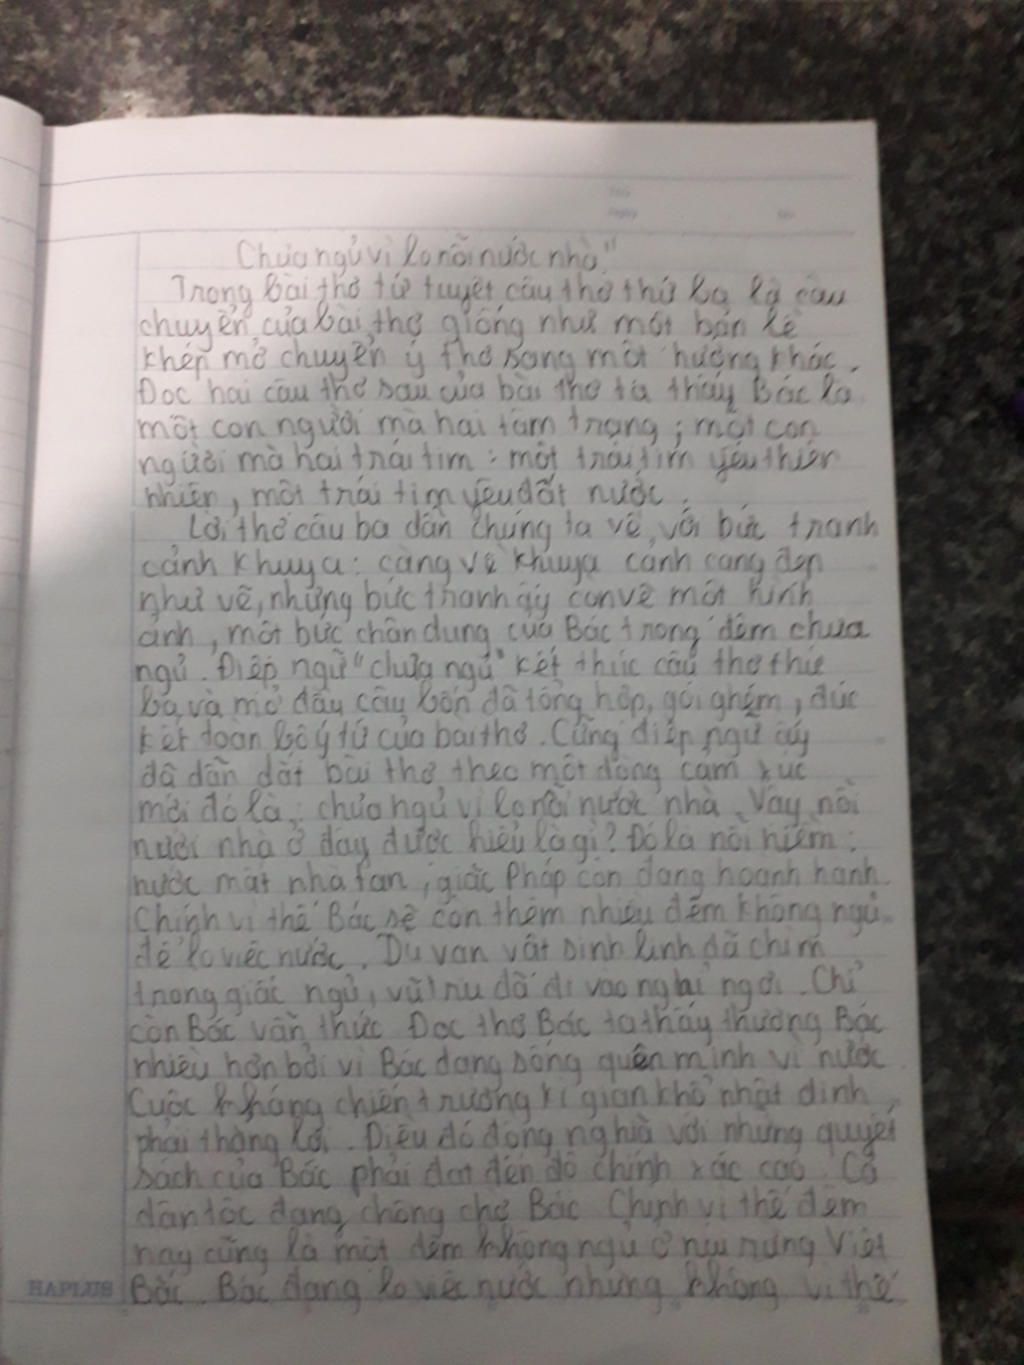 Chưa ngủ vì lo nỗi nước nhà."
Trong bài thơ tứ tuyệt câu thơ thứ ba là câu
chuyển của bài thơ giống như một bản lề
khép mở chuyển ý thơ sang một hướng khác.
Đọc hai câu thơ sau của bài thơ ta thấy Bác là
một con người mà hai tâm trạng; một con
người mà hai trái tim: một trái tim yêu thiên
nhiên, một trái tim yêu đất nước.
Lời thơ câu ba dẫn chúng ta về với bức tranh
cảnh khuya: càng về khuya cảnh càng đẹp
như vẽ, những bức tranh ấy còn vẽ một hình
ảnh, một bức chân dung của Bác trong đêm chưa
ngủ. Điệp ngữ "chưa ngủ" kết thúc câu thơ thứ
ba và mở đầu câu bốn đã tổng hợp, gói ghém, đúc
kết toàn bộ ý tứ của bài thơ. Cũng điệp ngữ ấy
đã dẫn dắt bài thơ theo một dòng cảm xúc
mới đó là: chưa ngủ vì lo nỗi nước nhà. Vậy nỗi
nước nhà ở đây được hiểu là gì? Đó là nỗi niềm:
nước mất nhà tan, giặc Pháp còn đang hoành hành.
Chính vì thế Bác sẽ còn thêm nhiều đêm không ngủ
để lo việc nước. Dù vạn vật sinh linh đã chìm
trong giấc ngủ, vũ trụ đã đi vào nghỉ ngơi. Chỉ
còn Bác vẫn thức. Đọc thơ Bác ta thấy thương Bác
nhiều hơn bởi vì Bác đang sống quên mình vì nước.
Cuộc kháng chiến trường kì gian khổ nhất định
phải thắng lợi. Điều đó đồng nghĩa với những quyết
sách của Bác phải đạt đến độ chính xác cao. Cả
dân tộc đang chông chờ Bác. Chính vì thế đêm
nay cũng là một đêm không ngủ ở núi rừng Việt
Bắc. Bác đang lo việc nước nhưng không vì thế
HAPLUS